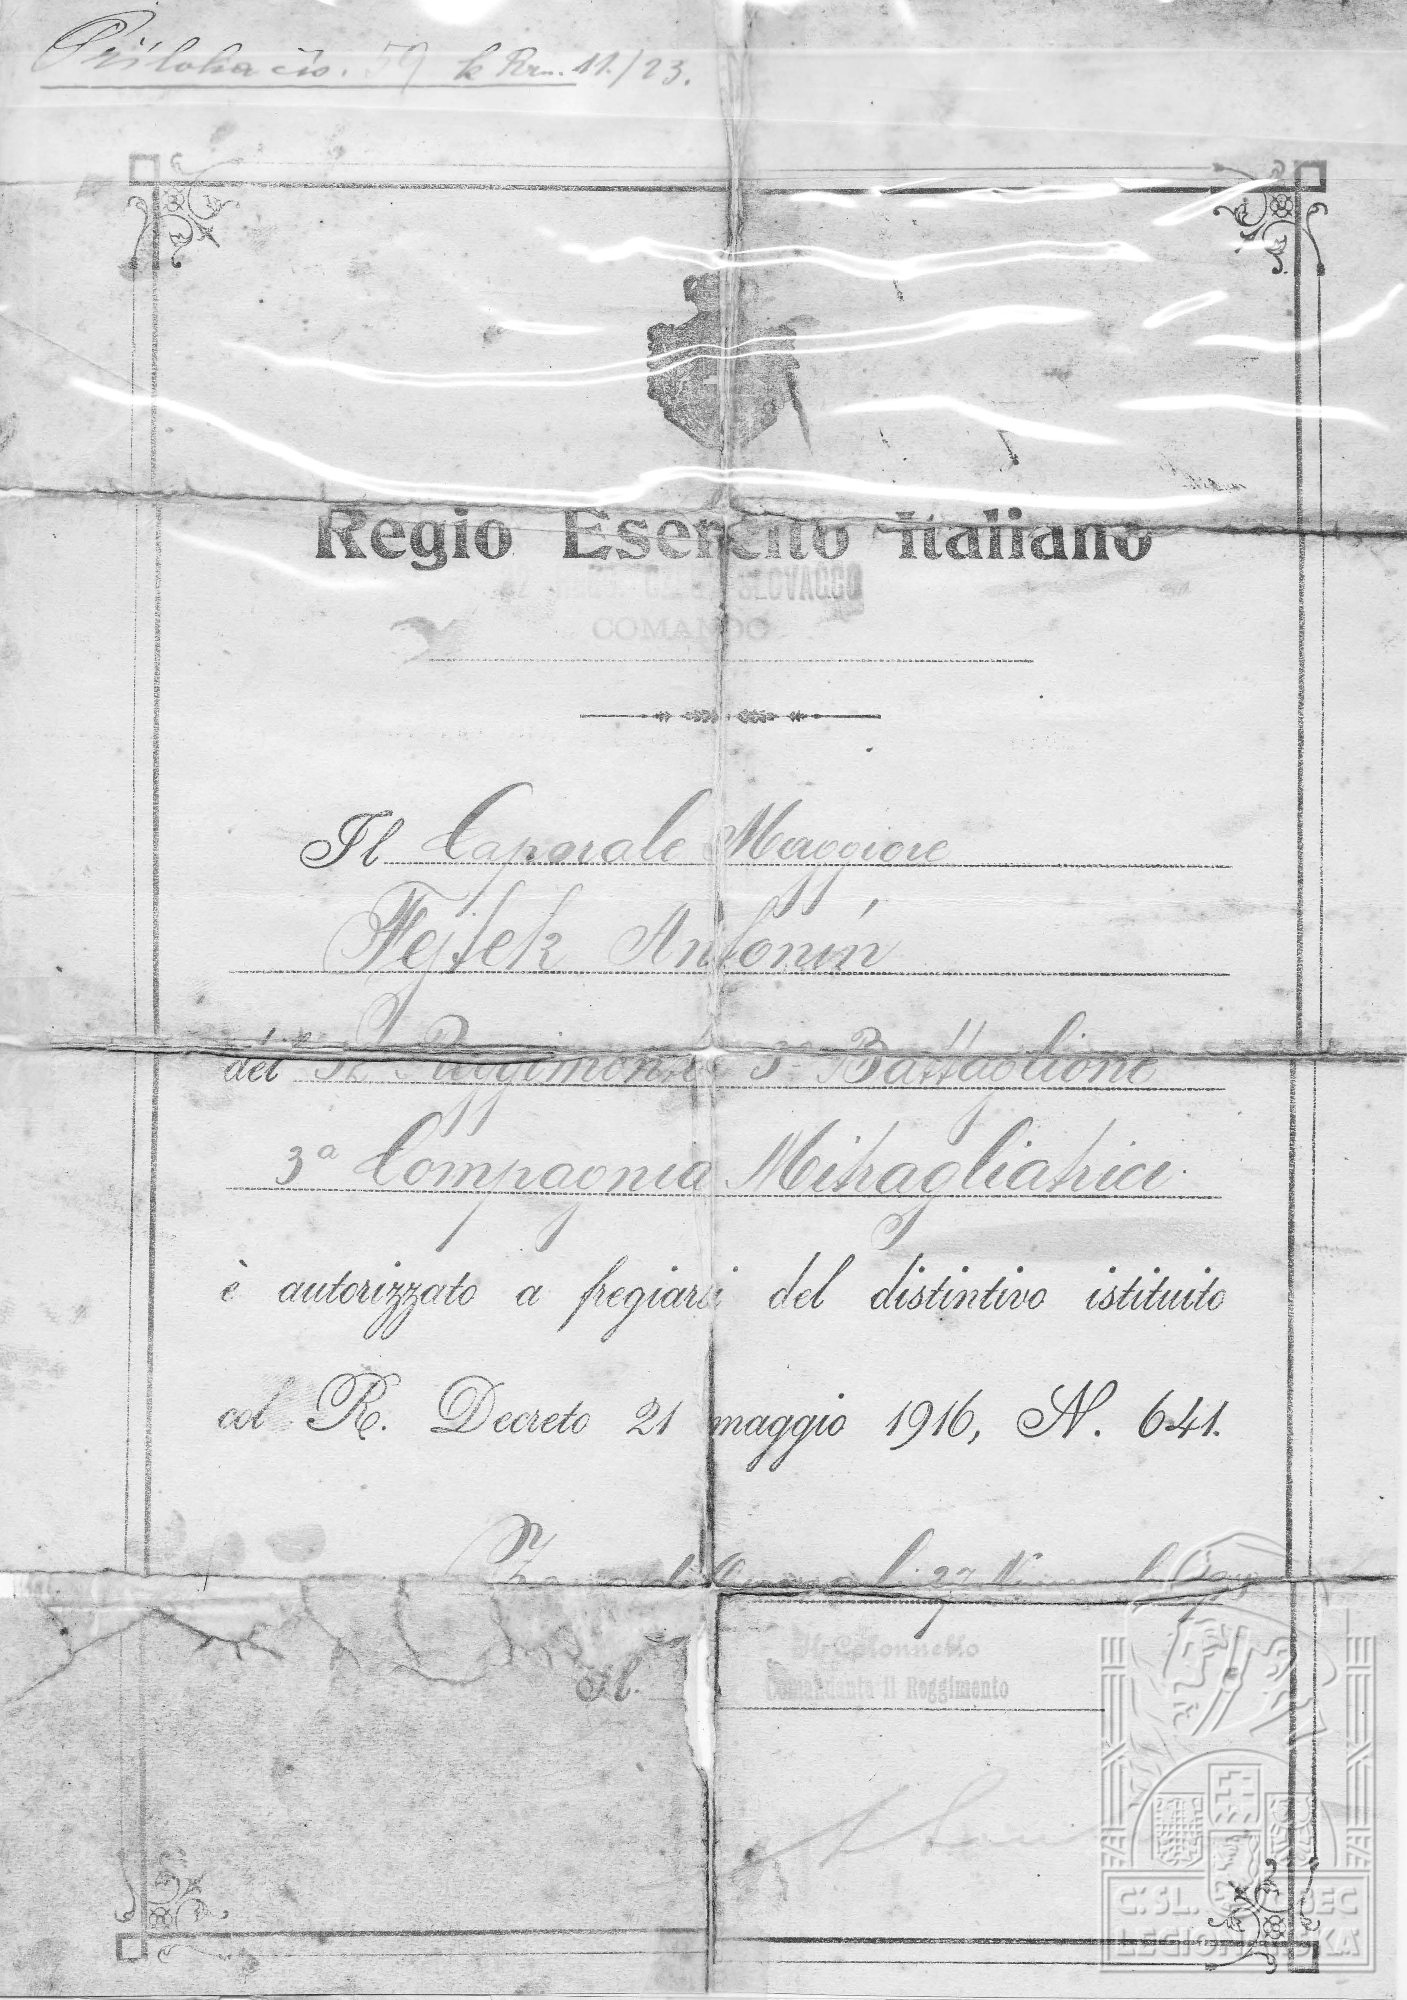 Příloha čís. 59 k Prn. 11./23.
Regio Esercito Italiano
SLOVACCO
COMANDO
Il Caporale Maggiore
Fejfek Antonín
del Reggimento 3º Battaglione
3ª Compagnia Mitragliatrici
è autorizzato a fregiarsi del distintivo istituito
col R. Decreto 21 maggio 1916, N. 641.
li 27
Il Colonnello
Il
Comandante il Reggimento
Č.SL. OBEC
LEGIONÁŘSKÁ